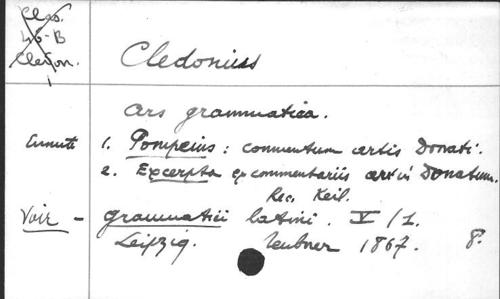 Clas.
46-B
Cledon.
Cledonius
Ars grammatica.
1. Pompeius: commentum artis Donati.
2. Excerpta ex commentariis artis Donatum.
Rec. Keil.
Voir - grammatici latini. V/1.
Leipzig. Teubner 1867. 8°.